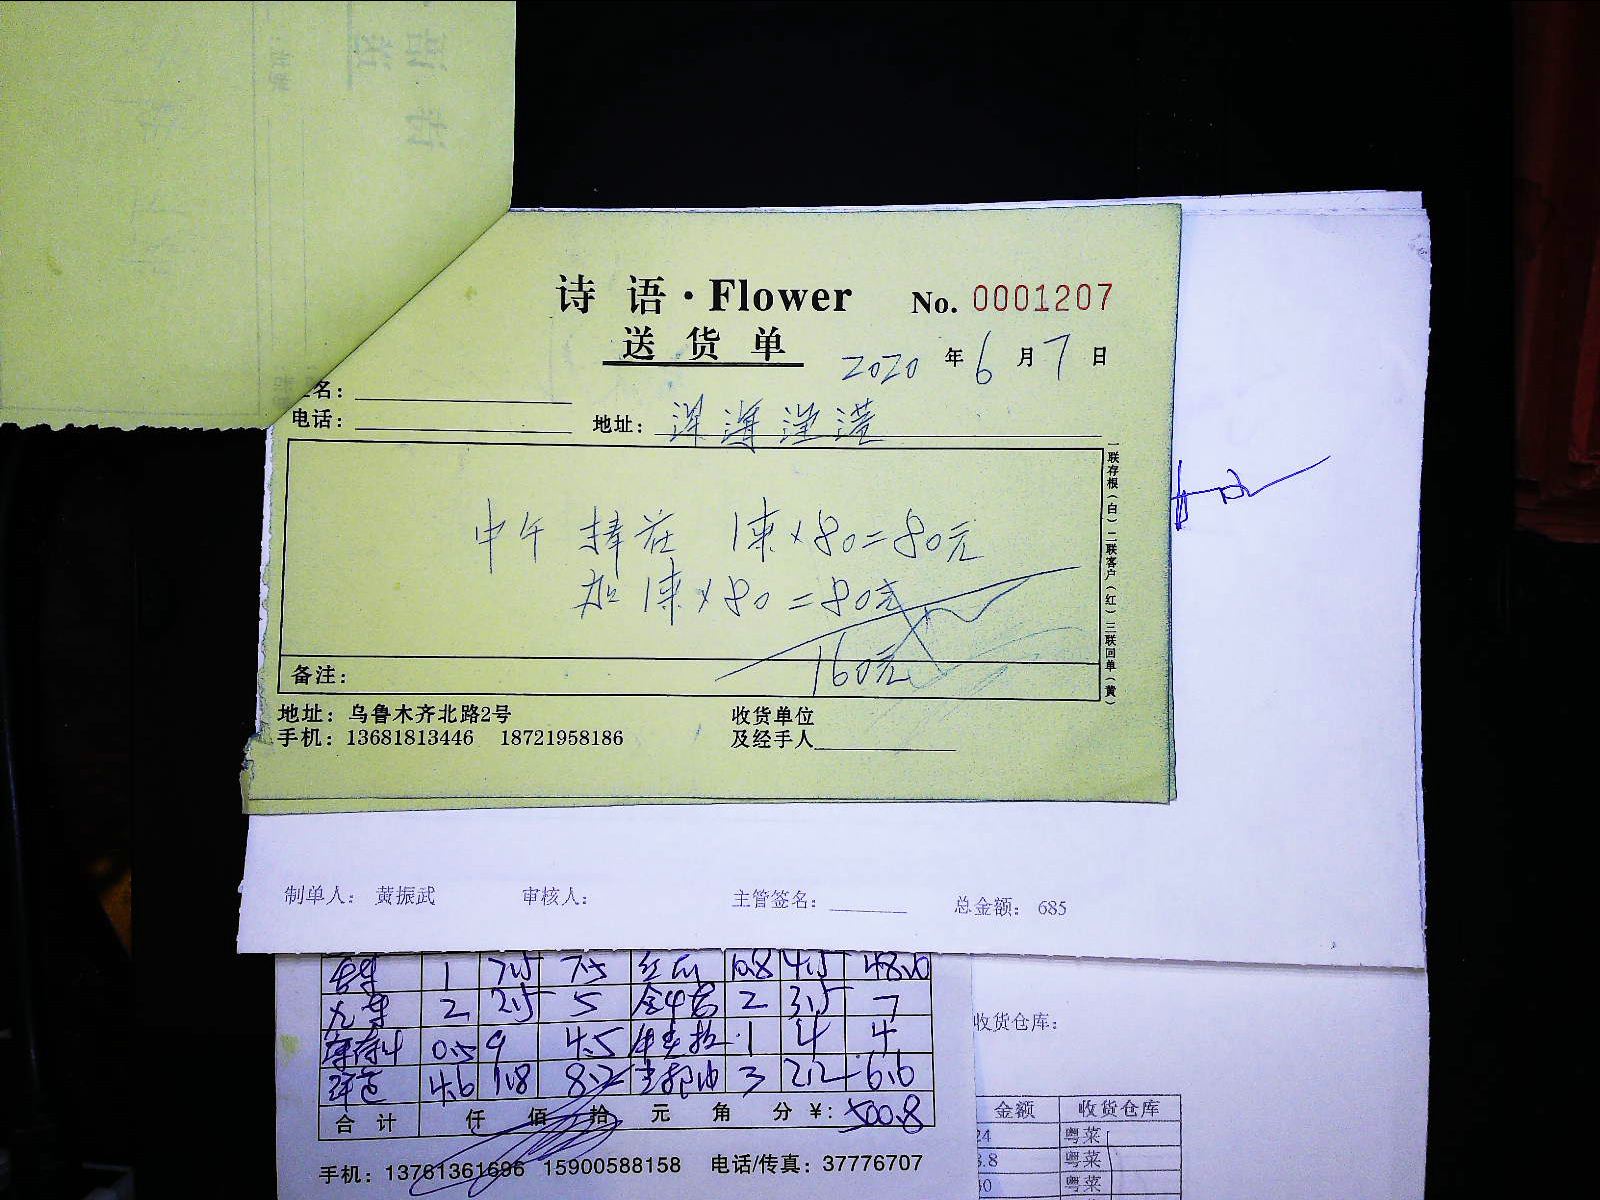 诗语·Flower No. 0001207
送货单
2020年6月7日
名：
电话： 地址：深海渔港
中午 捧花 1束×80=80元
加1束×80=80元
160元
备注：
一联存根（白）二联客户（红）三联回单（黄）
地址：乌鲁木齐北路2号 收货单位
手机：13681813446 18721958186 及经手人
制单人：黄振武 审核人： 主管签名： 总金额：685
1 7.5 7.5 10.8 4.5 48.0
2 2.5 5 2 3.5 7
0.5 9 4.5 1 4 4
4.6 1.8 8.2 3 2.2 6.6
合计 仟佰拾元角分￥：500.8
手机：13761361696 15900588158 电话/传真：37776707
收货仓库：
金额 收货仓库
24 粤菜
3.8 粤菜
粤菜